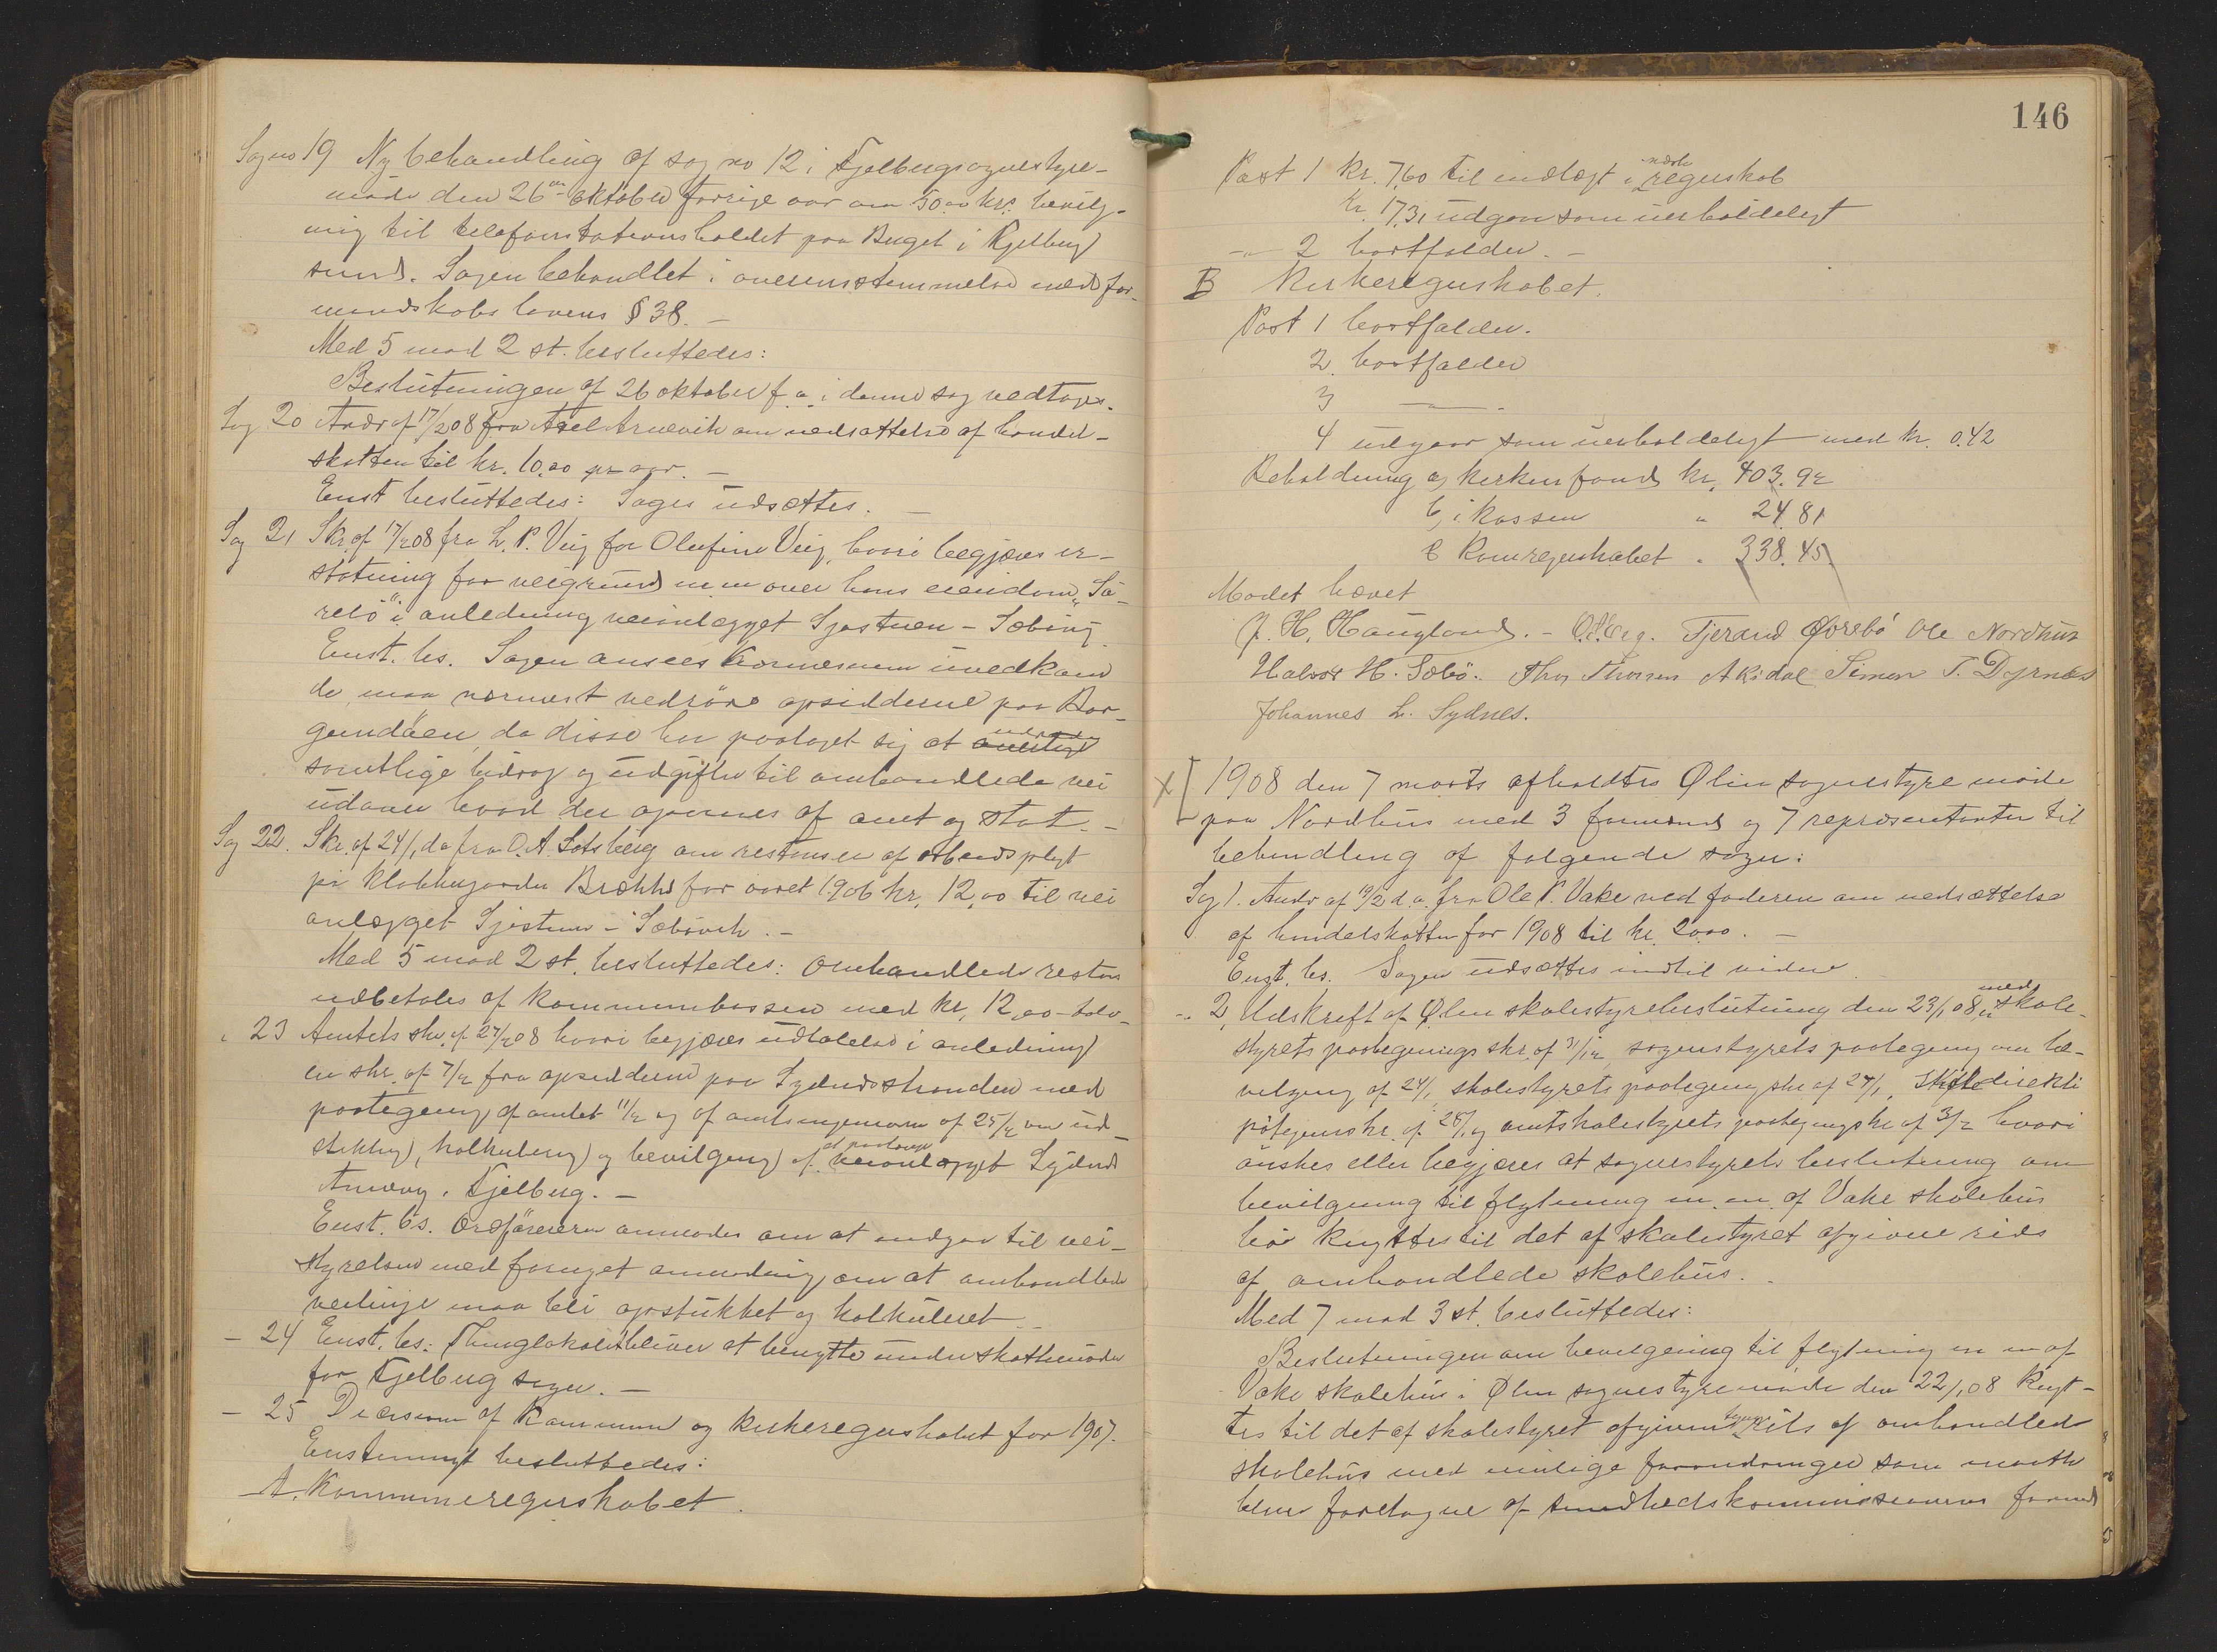 Sag no 19 Ny behandling af sag no 12 i Fjelberg sognestyre-
møde den 26de oktober forrige aar om 50.00 kr. bevilg-
ning til telefonstationsholdet paa Buget i Fjelberg
sund. Sagen behandlet i overensstemmelse med for-
mandskabs lovens § 38. —
Med 5 mod 2 st. besluttedes:
Beslutningen af 26 oktober f. a. i denne sag vedtages.
Sag 20 Andr af 17/2 08 fra Axel Arnevik om nedsættelse af handel-
skatten til kr. 10.00 pr aar. —
Enst besluttedes: Sagen udsættes. —
Sag 21 Skr. af 17/2 08 fra L. P. Veig for Olufine Veig, hvori begjæres er-
statning for veigrund m.m over hans eiendom „Sö-
reid" i anledning veianlægget Sjostuen - Sæbövig
Enst. bs. Sagen ansees kommunen uvedkom
de, maa nærmest vedröre opsidderne paa Bor-
gundöen, da disse har paataget sig at udrede
samtlige bidrag og udgifter til omhandlede vei
udover hvad der opnaaes af amt og stat. —
Sag 22. Skr. af 24/1 da fra O. A. Lotsberg om restancen af arbeidsplygt
på Klokkergaarden Brækhs for aaret 1906 kr. 12,00 til vei
anlægget Sjostuen - Sæbövik. —
Med 5 mod 2 st. besluttedes: Omhandlede restans
udbetales af kommunekassen med kr. 12,00 - tolv -
" 23 Amtets skr. af 27/2 08 hvori begjæres udtalelse i anledning
en skr. af 7/2 fra opsidderne paa Sydnesstranden med
paategning af amtet 11/2 og af amtsingeniøren af 25/2 om ud-
stikking, kalkulering og bevilgning af et paatænkt veianlægget Sydnes
Arnevig i Fjelberg. —
Enst. bs. Ordföreren anmodes om at andrage til vei-
styrelsen med fornyet anmodning om at omhandlede
veilinje maa bli opstukket og kalkuleret. —
— 24 Enst. bs.: Thinglokalet bliver at benytte under skattemöder
for Fjelberg sogn. —
— 25 Decision af Kommune og kirkeregnskabet for 1907.
Enstemmigt besluttedes:
A. Kommuneregnskabet.
146
Post 1 kr. 7,60 til indtægt i næste regnskab
kr. 17,31 udgaar som uerholdeligt
-"- 2 bortfalder. —
B Kirkeregnskabet.
Post 1 bortfalder.
2. bortfalder
3 —
4 udgaar som uerholdeligt med kr. 0.42
Beholdning a, kirkens fond kr. 403.92
b, i kassen " 24.81
C Komregnskabet " 338.45
Mødet hævet
J. H. Haugland. - O. Veg. Tjerand Øvrebö Ole Nordhus
Halvor H. Sæbö. Thor Thorsen A Ksdal Simon T. Dyrnes
Johannes L. Sydnes.
X [ 1908 den 7 marts afholdtes Ølen sognestyre möde
paa Nordhus med 3 formænd og 7 repræsentanter til
behandling af følgende sager:
Sag 1. Andr af 19/2 d.a. fra Ole P. Vake ved faderen om nedsættelse
af handelskatten for 1908 til kr. 20.00. —
Enst. bs. Sagen udsættes indtil videre
-"- 2, Udskrift af Ølen skolestyrebeslutning den 23/1 08 med skole-
styrets paategnings skr. af 31/12, sognestyrets paategning om be-
vilgning af 24/1 skolestyrets paategning skr af 24/1, Skoledirekti
påtegn skr. af 28/1 og amtskolestyrets paategningskr af 3/2 hvori
önskes eller begjæres at sognestyrets beslutning om
bevilgning til flytning m.m. af Vake skolehus
bör knyttes til det af skolestyret afgivne rids
af omhandlede skolehus.
Med 7 mod 3 st. besluttedes:
Beslutningen om bevilgning til flytning m m af
Vake skolehus i Ølen sognestyremöde den 22/1 08 knyt-
tes til det af skolestyret afgivne rids af omhandlede
skolehus med mulige forandringer som maatte
blive foretagne af sundhedskommissionens formd